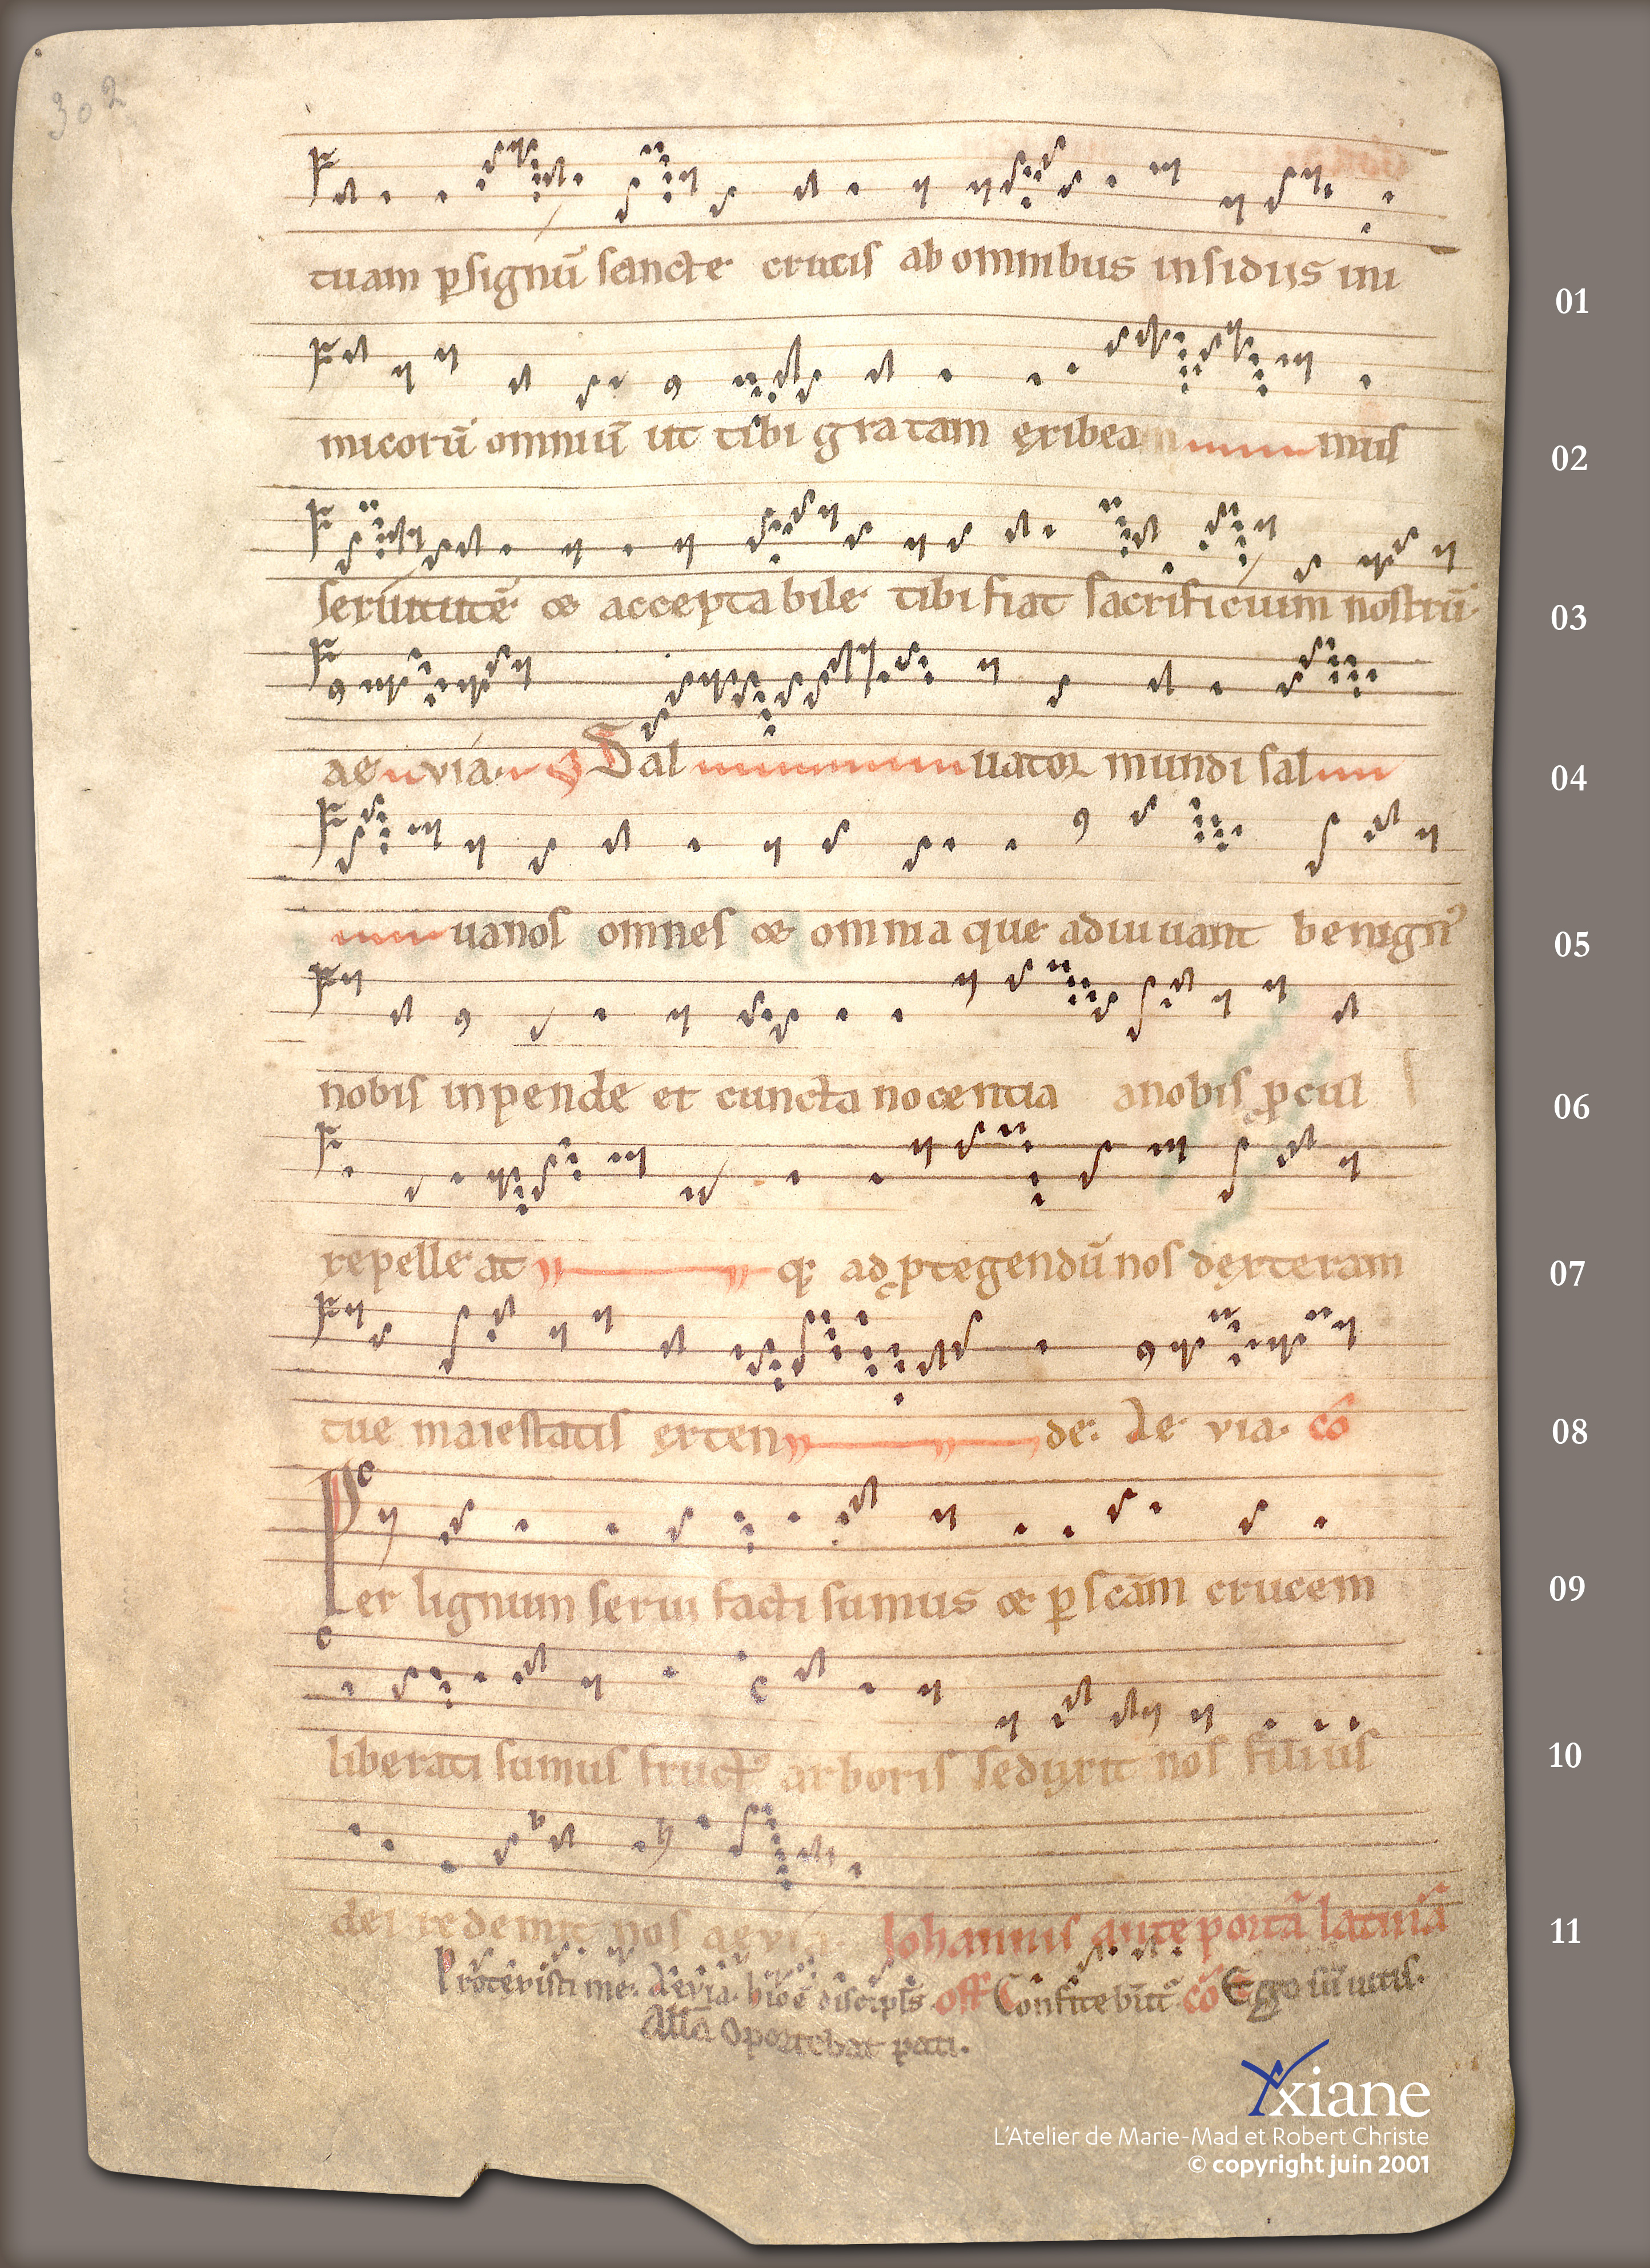 302
tuam p signū sancte crucis ab omnibus insidiis ini
01
micorū omniū ut tibi gratam exibeamus
02
seruitutē & acceptabile tibi fiat sacrificium nostrū
03
aeuia Sal uator mundi sal
04
uanos omnes & omnia que adiuuant benign
05
nobis inpende et cuncta nocentia anobis pcul
06
repelle at q; ad ptegendū nos dexteram
07
tue maiestatis exten de. Ae via. cō
08
Per lignum serui facti sumus & p scām crucem
09
liberati sumus fruct9 arboris seduxit nos filius
10
dei redemit nos aevia. Johannis ante portā latinā
11
Protexisti me. Aevia. off Confitebūt cō Ego sū uitis.
Allā Oportebat pati.
Yxiane
L'Atelier de Marie-Mad et Robert Christe
© copyright juin 2001